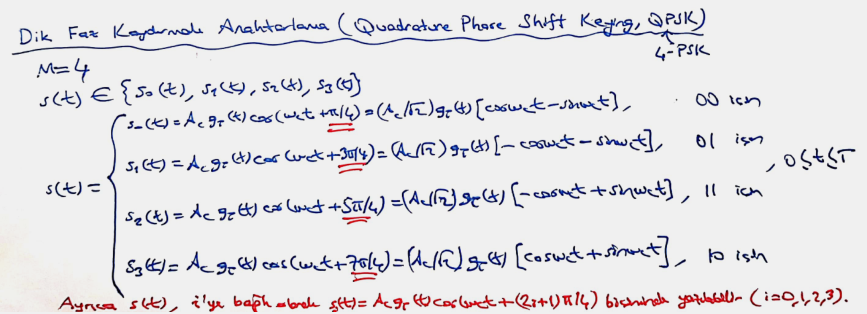 Dik Faz Kaydırmalı Anahtarlama (Quadrature Phase Shift Keying, QPSK)
4-PSK
M=4
s(t) ∈ {s₀(t), s₁(t), s₂(t), s₃(t)}
s₀(t) = A_c g_τ(t) cos(ω_c t + π/4) = (A_c/√2) g_τ(t) [cosω_c t - sinω_c t], 00 için
s₁(t) = A_c g_τ(t) cos(ω_c t + 3π/4) = (A_c/√2) g_τ(t) [-cosω_c t - sinω_c t], 01 için
s(t) = , 0≤t≤T
s₂(t) = A_c g_τ(t) cos(ω_c t + 5π/4) = (A_c/√2) g_τ(t) [-cosω_c t + sinω_c t], 11 için
s₃(t) = A_c g_τ(t) cos(ω_c t + 7π/4) = (A_c/√2) g_τ(t) [cosω_c t + sinω_c t], 10 için
Ayrıca s(t), i'ye bağlı olarak s_i(t) = A_c g_τ(t) cos(ω_c t + (2i+1)π/4) biçiminde yazılabilir (i=0,1,2,3).